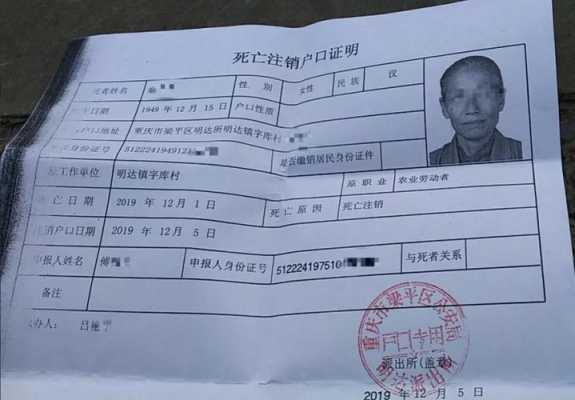 死亡注销户口证明
死者姓名 性别 女性 民族 汉
出生日期 1949 年 12 月 15 日 户口性质
户口地址 重庆市梁平区明达所明达镇字库村
身份证号 512224194912 是否缴销居民身份证件
工作单位 明达镇字库村 原职业 农业劳动者
死亡日期 2019 年 12 月 1 日 死亡原因 死亡注销
注销户口日期 2019 年 12 月 5 日
申报人姓名 傅 申报人身份证号 512224197510 与死者关系
备注
承办人: 吕
重庆市梁平区公安局
户口专用
派出所(盖章)
明达派出所
2019 年 12 月 5 日